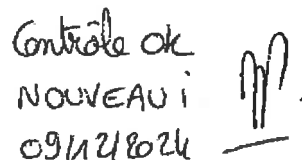 Contrôle ok
NOUVEAU i
09/12/2024